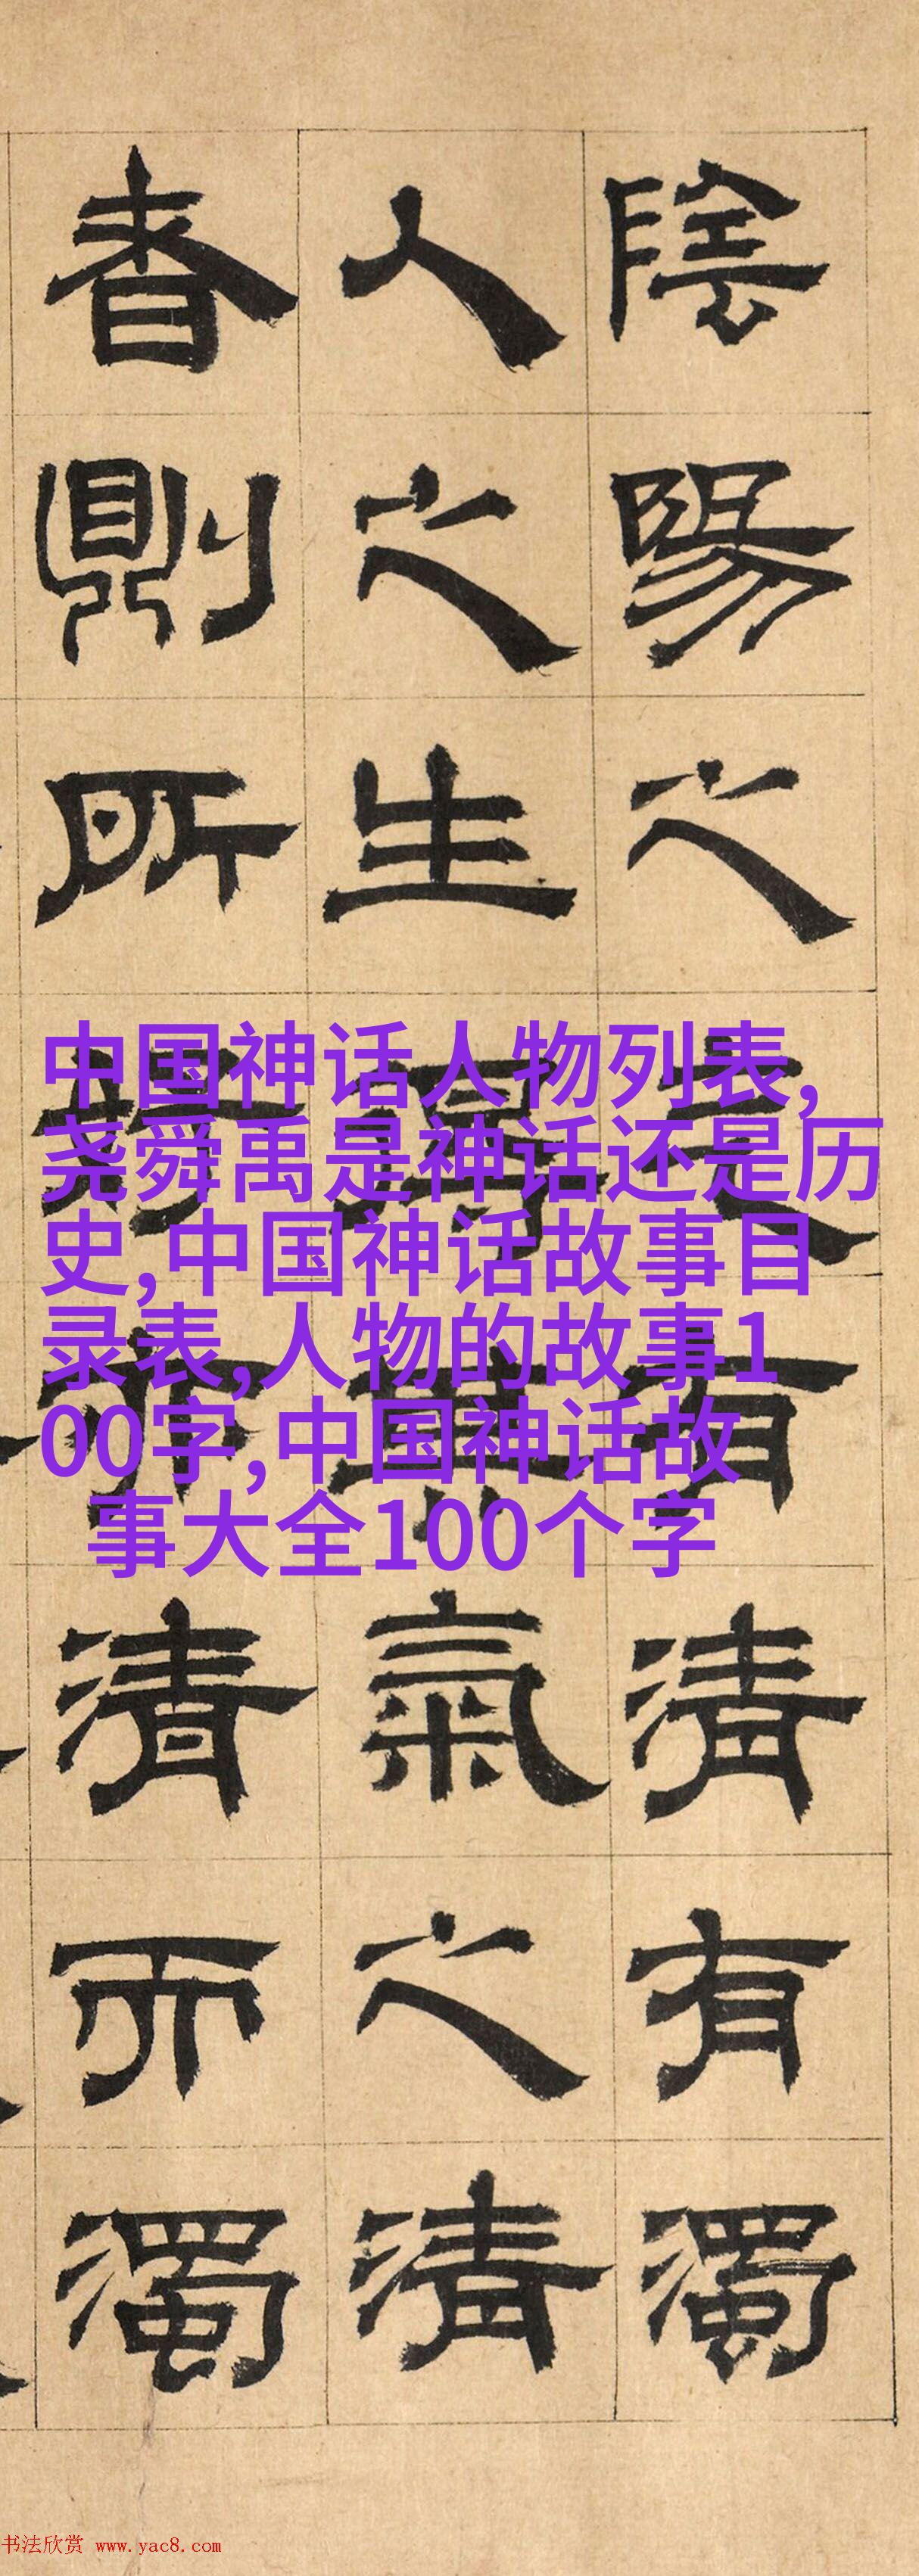 陰陽之气有清有濁
人之生得其氣之清
者則所清而濁
中国神话人物列表,
尧舜禹是神话还是历
史,中国神话故事目
录表,人物的故事1
00字,中国神话故
事大全100个字
书法欣赏 www.yac8.com